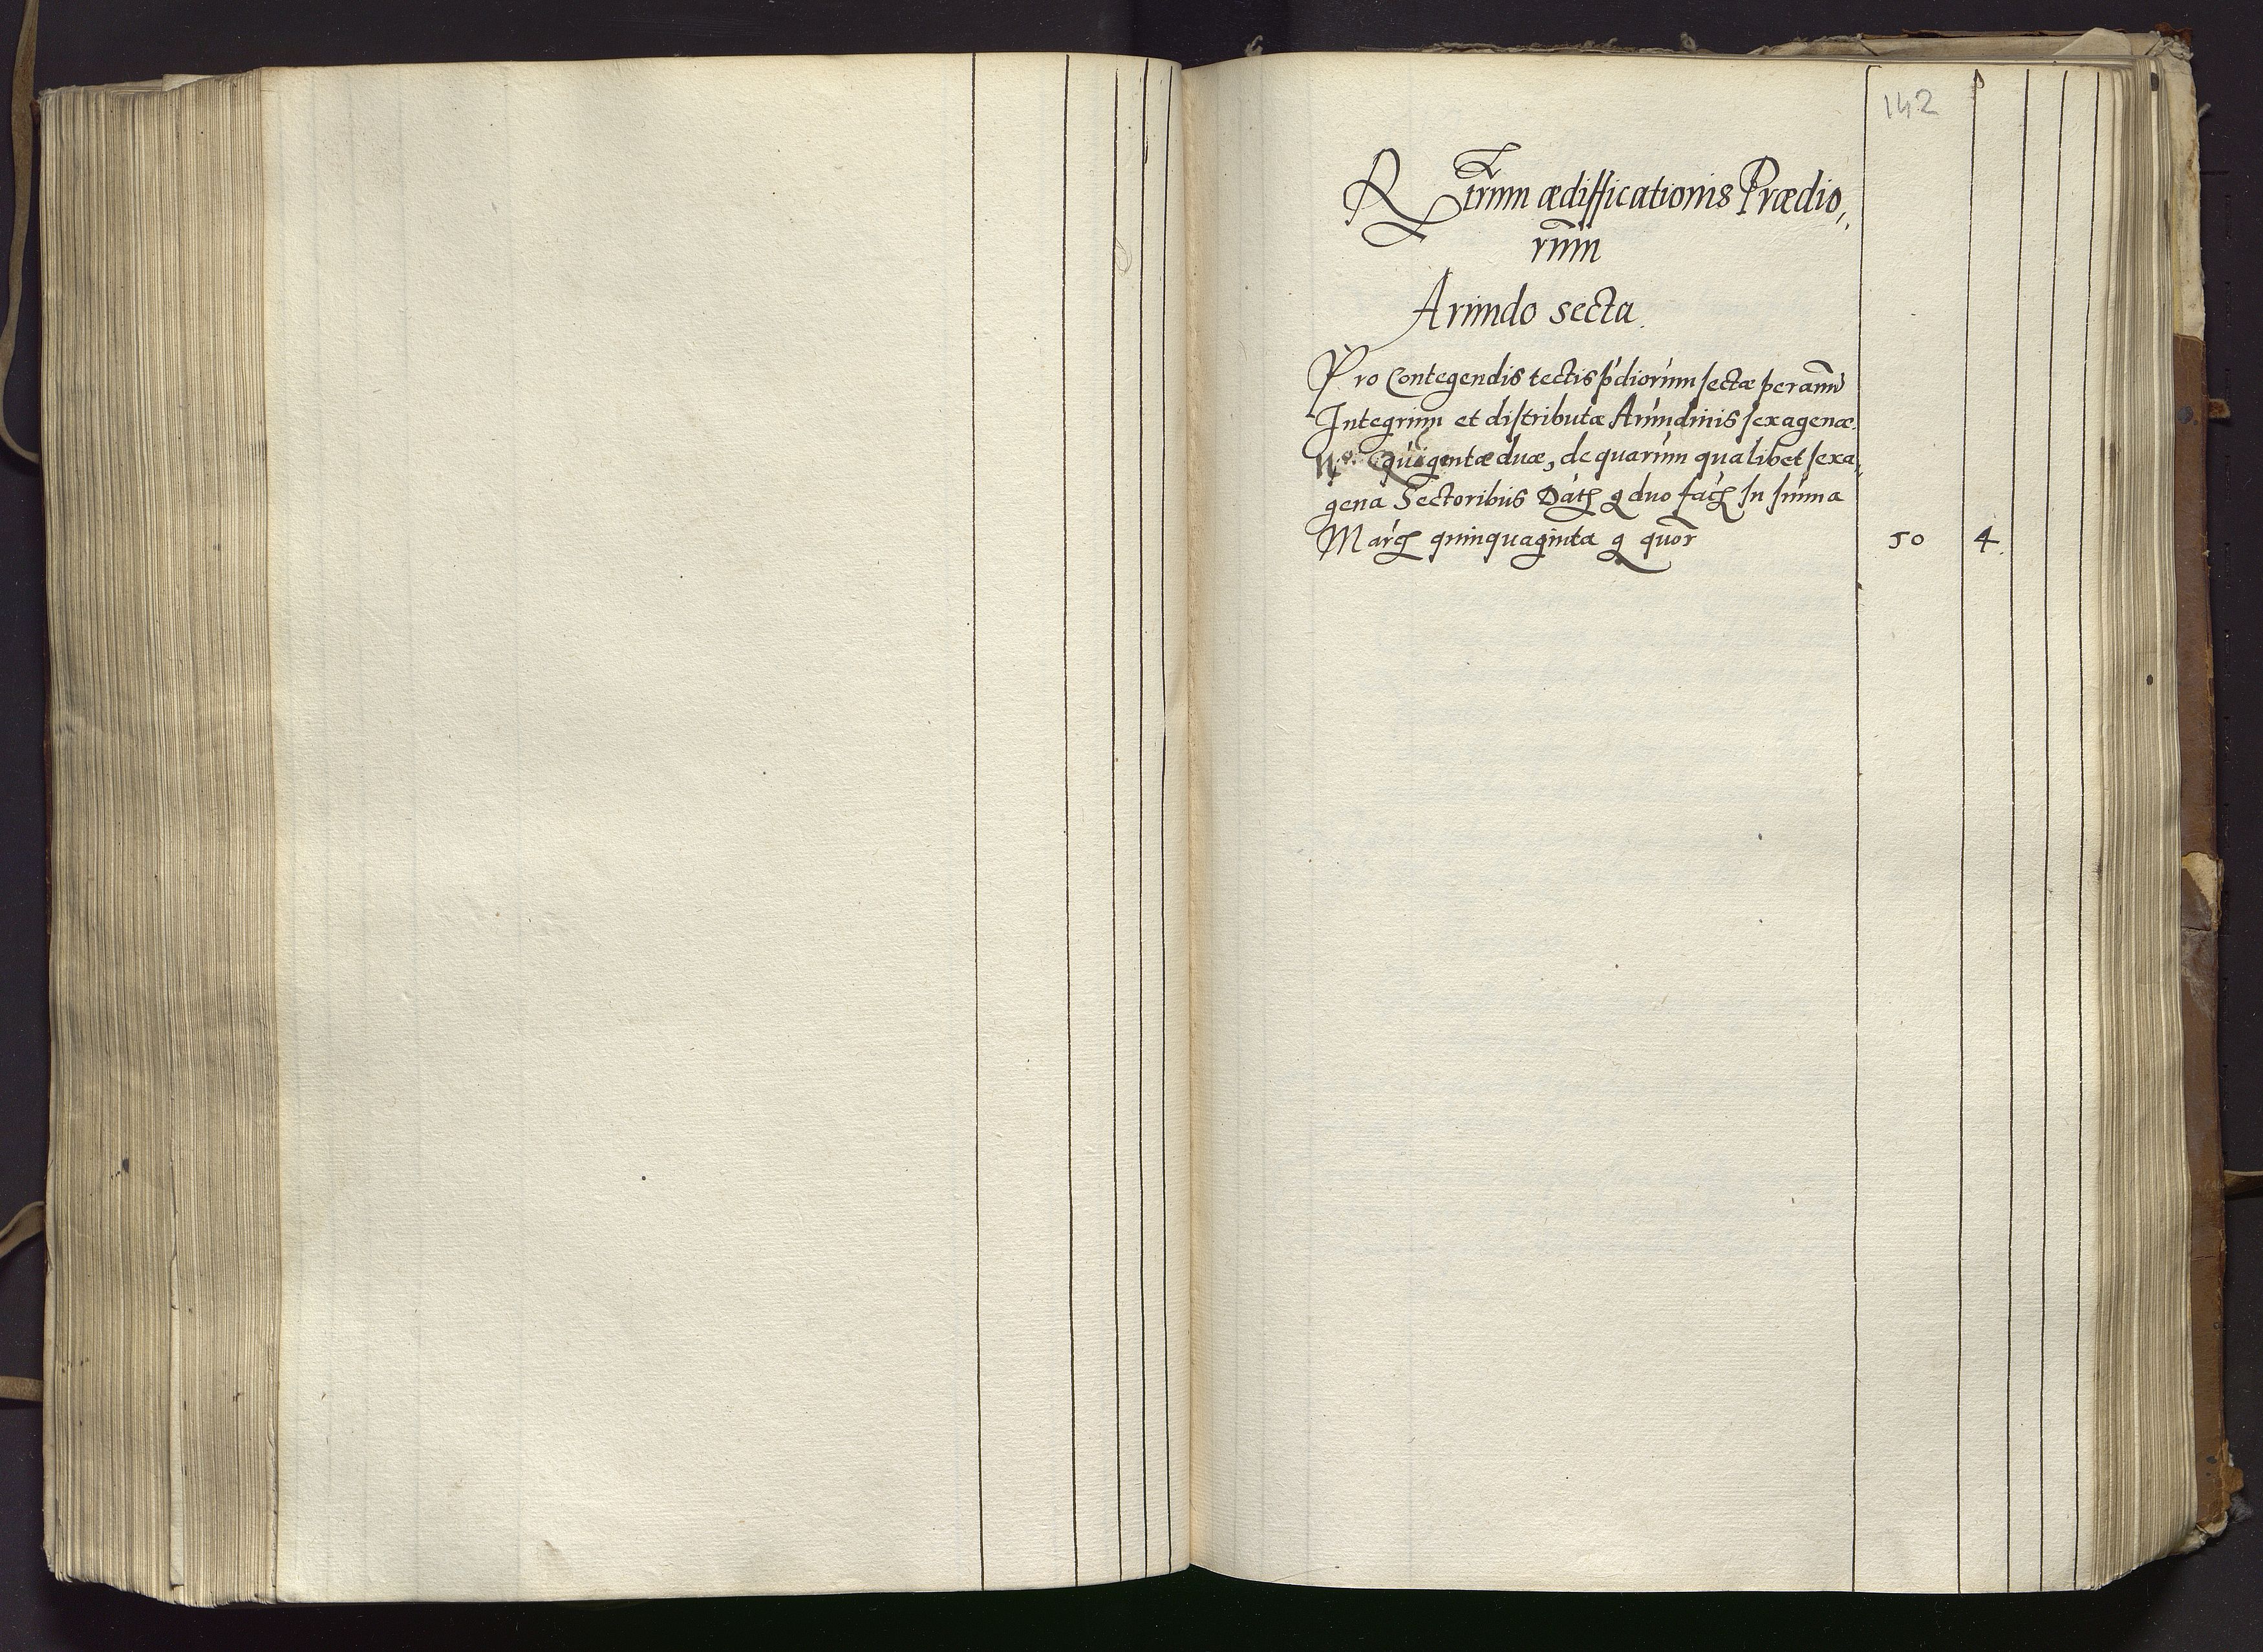 142
Rerum ædifficationis Prædio„
rum
Arundo secta.
Pro Contegendis tectis pdiorum sectæ per annũ
Integrum et distributæ Arundinis sexagenæ
No. Quigentæ duæ, de quarum qualibet sexa„
gena Sectoribus Dat g duo fac In suma
Marc quinquaginta g quor 50 4.